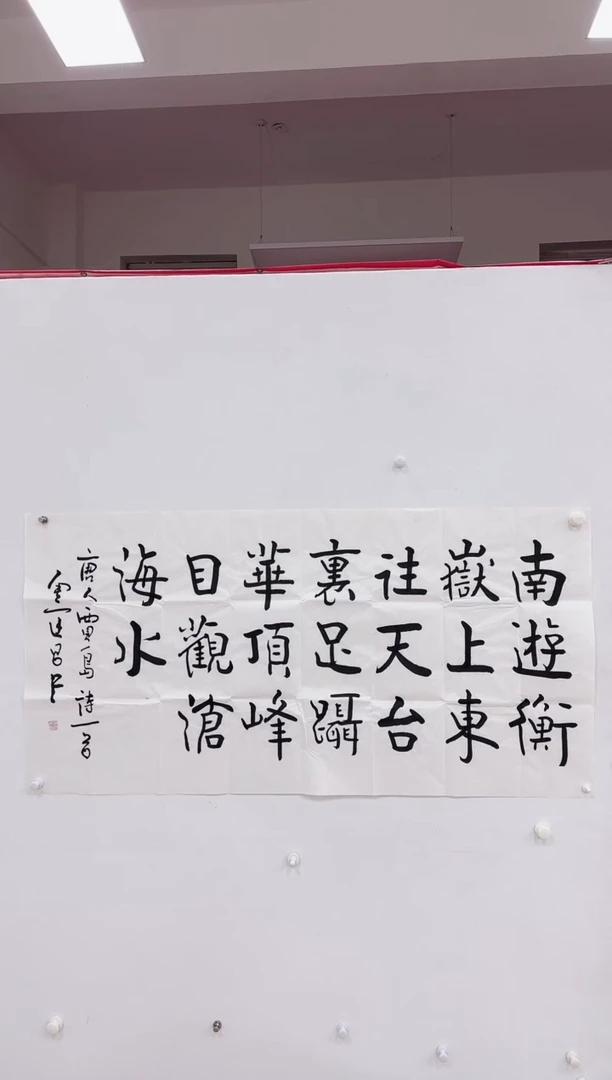 南遊衡
嶽上東
往天台
裏足躡
華頂峰
目觀滄
海水
唐人賈島詩一首